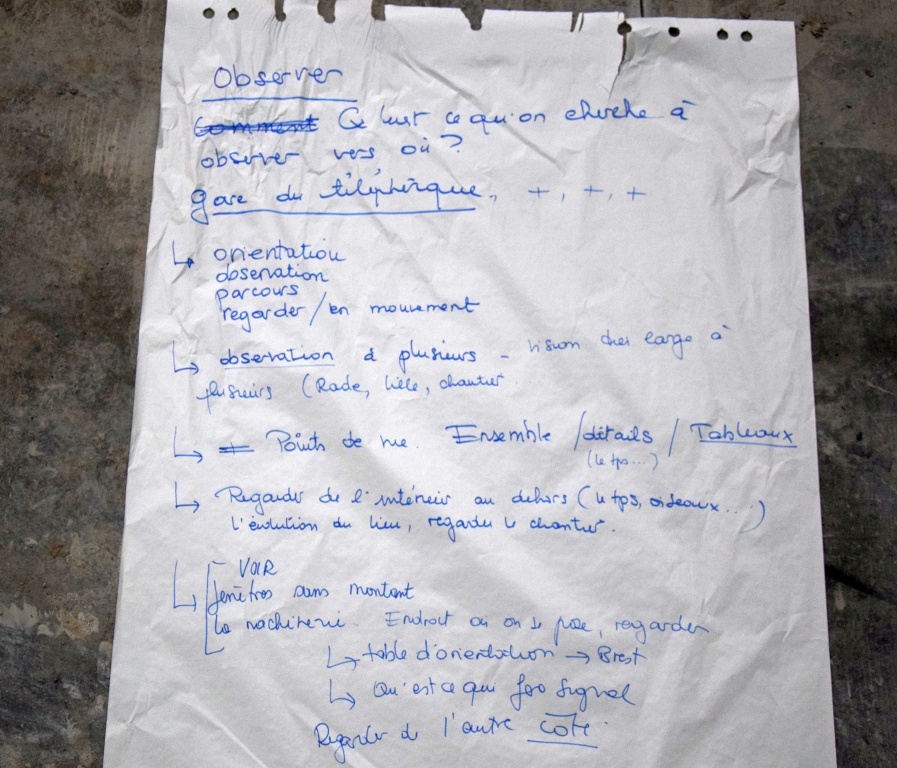 Observer
Comment Ce qu'on cherche à
observer vers où ?
gare du téléphérique, +, +, +
↳ orientation
observation
parcours
regarder / en mouvement
↳ observation à plusieurs - large à
plusieurs (Rade, chantier
↳ ≠ Points de vue. Ensemble / détails / Tableaux
(le tps...)
↳ Regarder de l'intérieur au dehors (le tps, oiseaux...)
l'évolution du lieu, regarder le chantier.
↳ VOIR
fenêtres sans montant
la machinerie. Endroit où on se pose, regarder
↳ table d'orientation → Brest
↳ Qu'est ce qui fera signal
Regarder de l'autre côté.